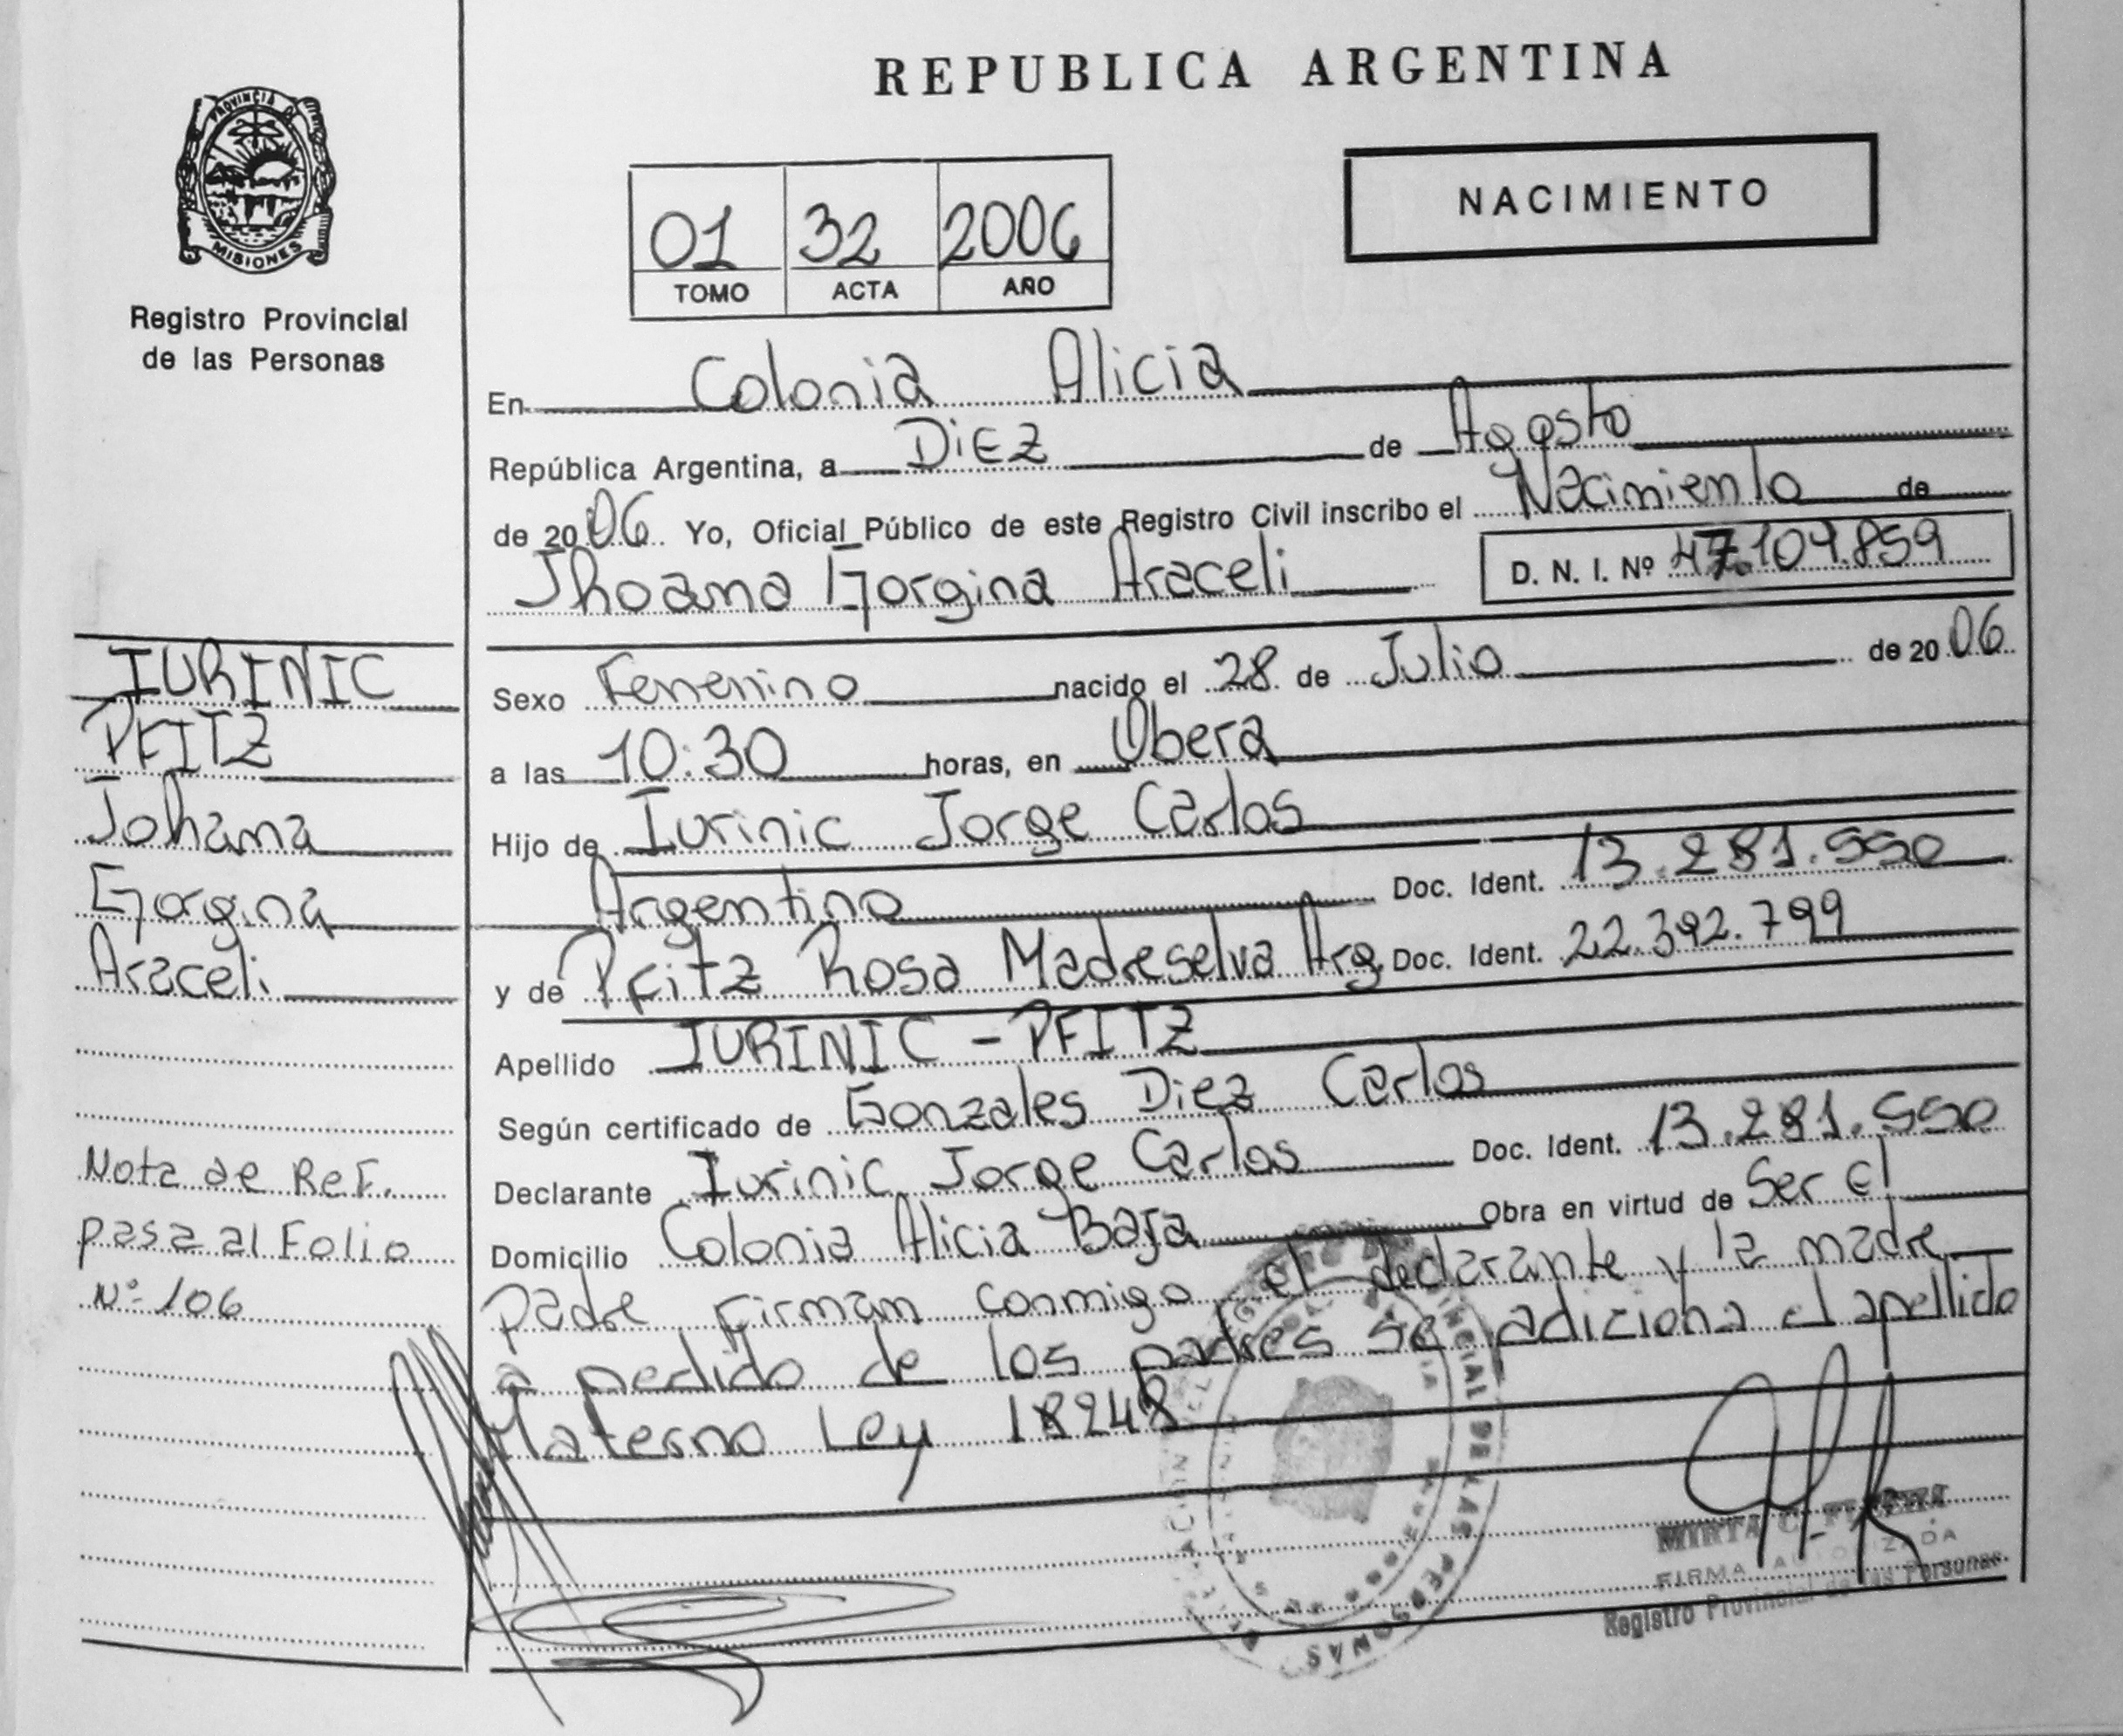 REPUBLICA ARGENTINA
PROVINCIA DE
MISIONES
Registro Provincial
de las Personas
NACIMIENTO
01 32 2006
TOMO ACTA AÑO
En Colonia Alicia
República Argentina, a Diez de Agosto
de 2006 Yo, Oficial Público de este Registro Civil inscribo el Nacimiento de
Jhoana Gorgina Araceli D. N. I. Nº 47.109.859
Sexo Femenino nacido el 28 de Julio de 2006
a las 10:30 horas, en Obera
Hijo de Iurinic Jorge Carlos
Argentino Doc. Ident. 13.281.550
y de Pfitz Rosa Madreselva Arg. Doc. Ident. 22.392.799
Apellido IURINIC - PFITZ
Según certificado de Gonzales Diez Carlos
Declarante Iurinic Jorge Carlos Doc. Ident. 13.281.550
Domicilio Colonia Alicia Baja Obra en virtud de Ser el
padre Firman conmigo el declarante y la madre
a pedido de los padres se adiciona el apellido
Materno Ley 18248
IURINIC
PFITZ
Johana
Gorgina
Araceli
Nota de Ref.
pasa al Folio
Nº 106
MIRTA C.
FIRMA AUTORIZADA
Registro Provincial de las Personas